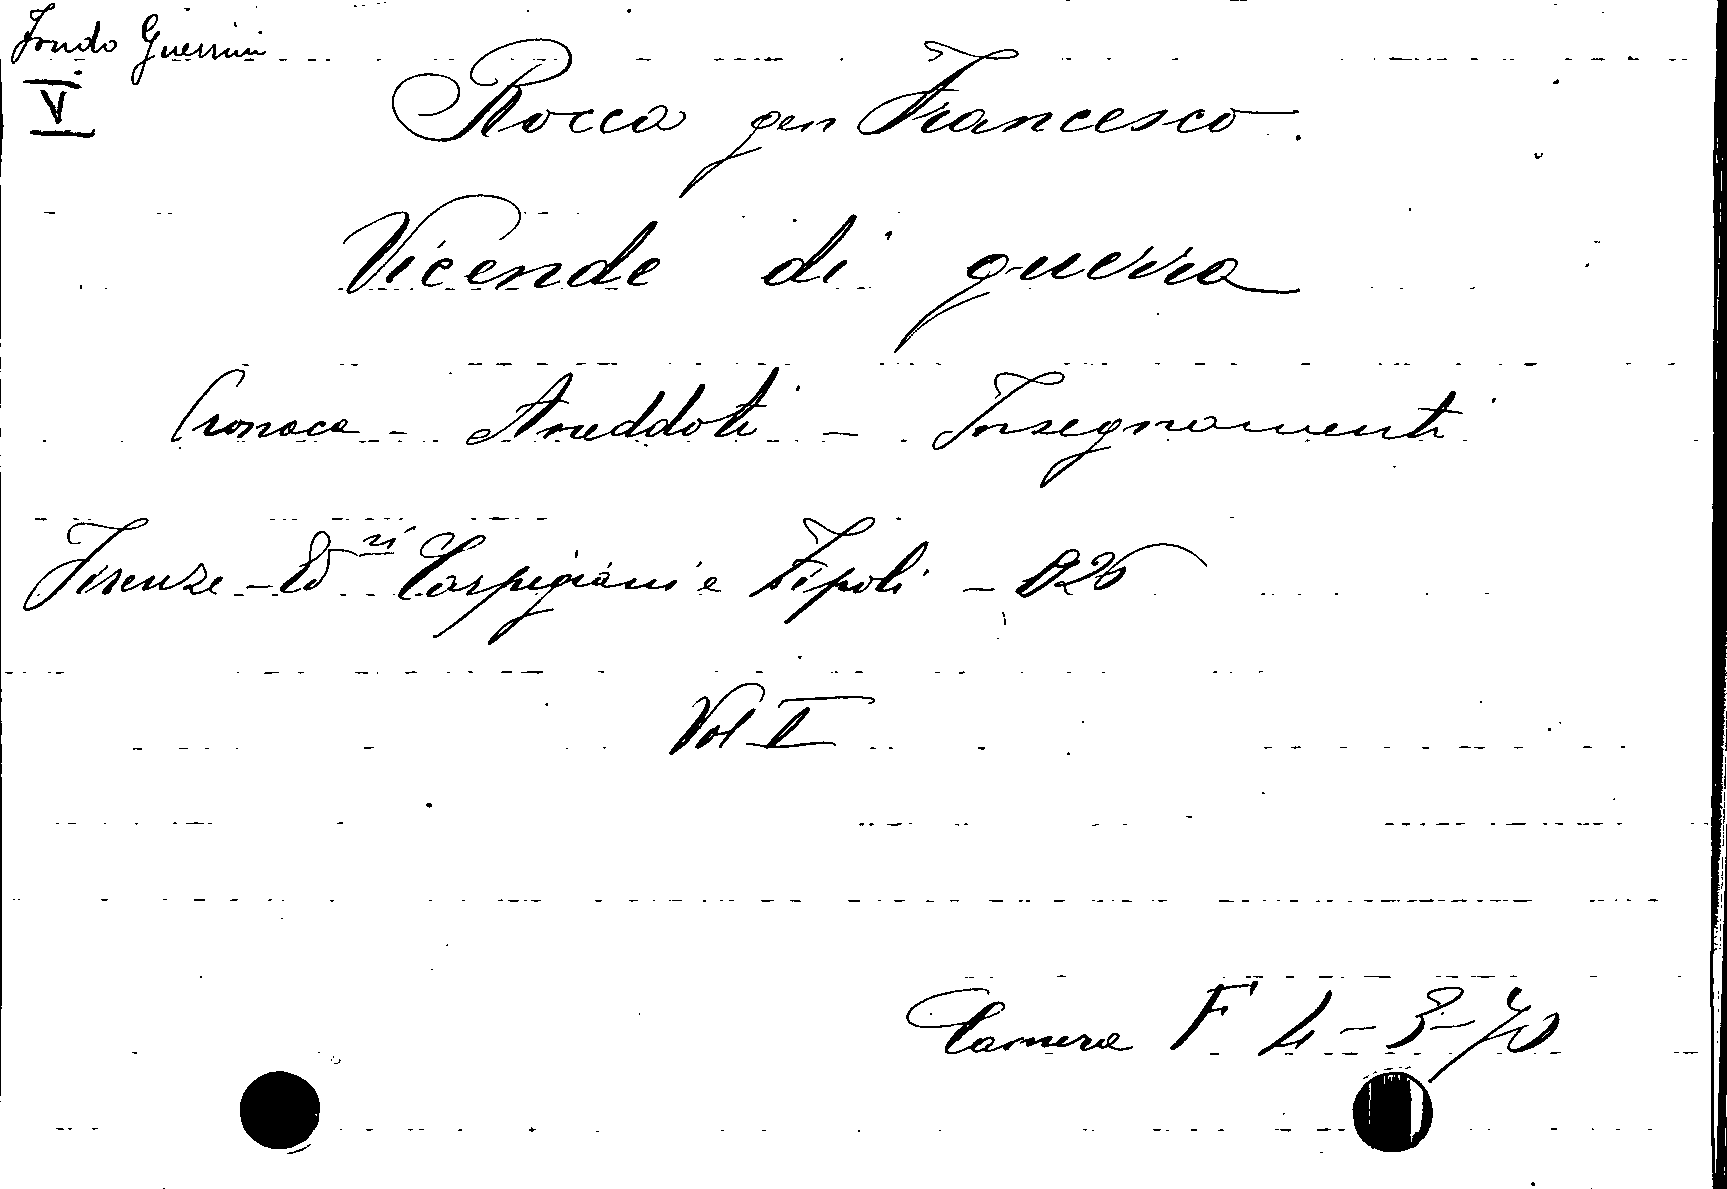 Fondo Guerrini
V
Rocca gen Francesco.
Vicende di guerra
Cronaca - Aneddoti - Insegnamenti
Firenze - Ed.ri Carpigiani e Zipoli - 926
Vol I
Camera F 4 - 3 - 70